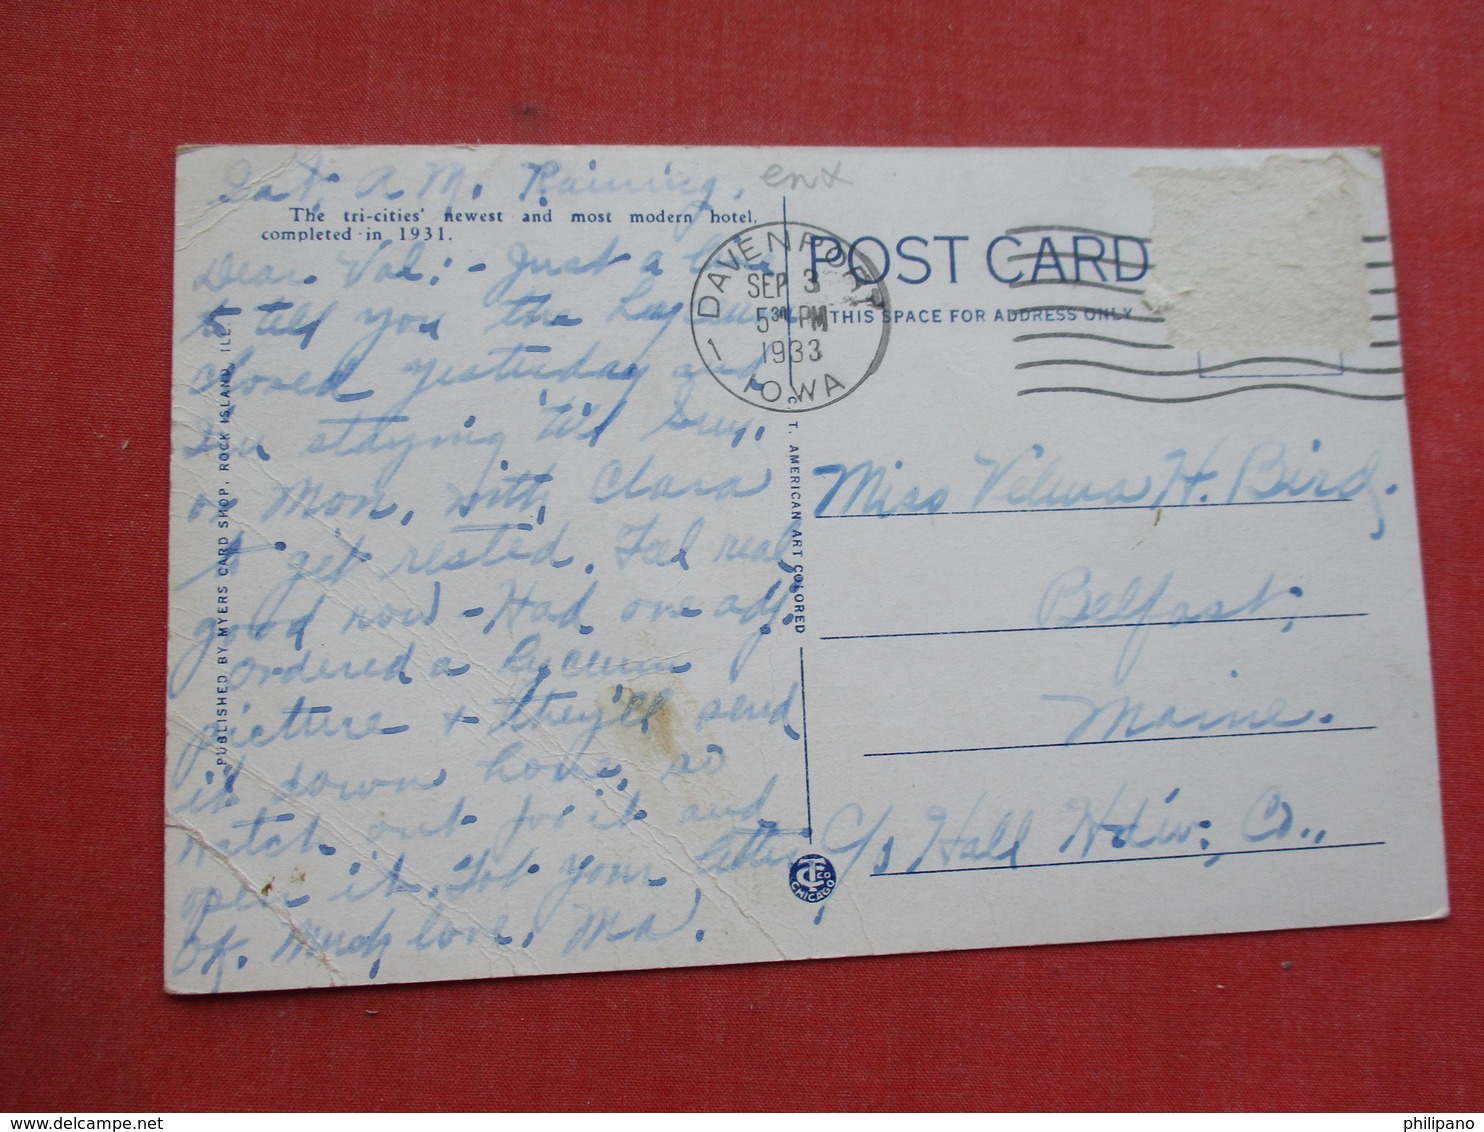 Sat. A.M. Raining.
enx
The tri-cities' newest and most modern hotel,
completed in 1931.
Dear Val:- Just a line
to tell you the Lyceum
closed yesterday and
I'm staying 'till Sun.
or Mon. with Clara
to get rested. Feel real
good now - Had one adj.
ordered a Lyceum
picture & they'll send
it down home, so
watch out for it and
open it. Got your letter
OK. Much love, Ma.
PUBLISHED BY MYERS CARD SHOP, ROCK ISLAND, ILL.
DAVENPORT
SEP 3
5 30 PM
1933
1 IOWA
POST CARD
THIS SPACE FOR ADDRESS ONLY
C. T. AMERICAN ART COLORED
CT CO
CHICAGO
Miss Velma H. Bird,
Belfast,
Maine.
c/o Hall Hdw. Co.,
delcampe.net
philipano